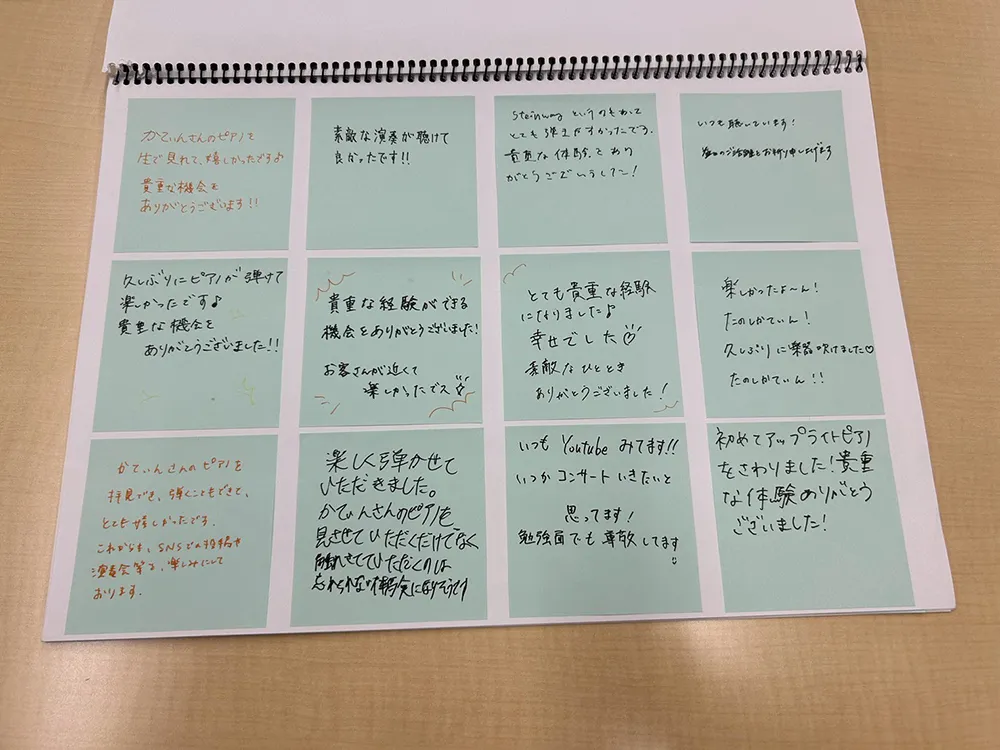 かてぃんさんのピアノを
生で見れて、嬉しかったです♪
貴重な機会を
ありがとうございます!!
素敵な演奏が聴けて
良かったです!!
Steinway というのもあって
とても弾きやすかったです.
貴重な体験をあり
がとうございました!
いつも聴いています!
のご活躍をお祈り申し上げます
久しぶりにピアノが弾けて
楽しかったです♪
貴重な機会を
ありがとうございました!!
貴重な経験ができる
機会をありがとうございました!
お客さんが近くて
楽しかったでス♡
とても貴重な経験
になりました♪
幸せでした♡
素敵なひととき
ありがとうございました!
楽しかったよ〜ん!
たのしかてぃん!
久しぶりに楽器吹けました♡
たのしかてぃん!!
かてぃんさんのピアノを
拝見でき、弾くこともできて、
とても嬉しかったです.
これからも、SNSでの投稿や
演奏会等を、楽しみにして
おります.
楽しく弾かせて
いただきました。
かてぃんさんのピアノを
見させていただくだけでなく
触れさせていただくのは
忘れられない体験になりそうです
いつも Youtube みてます!!
いつか コンサート いきたいと
思ってます!
勉強面でも尊敬してます
初めてアップライトピアノ
をさわりました!貴重
な体験ありがとう
ございました!